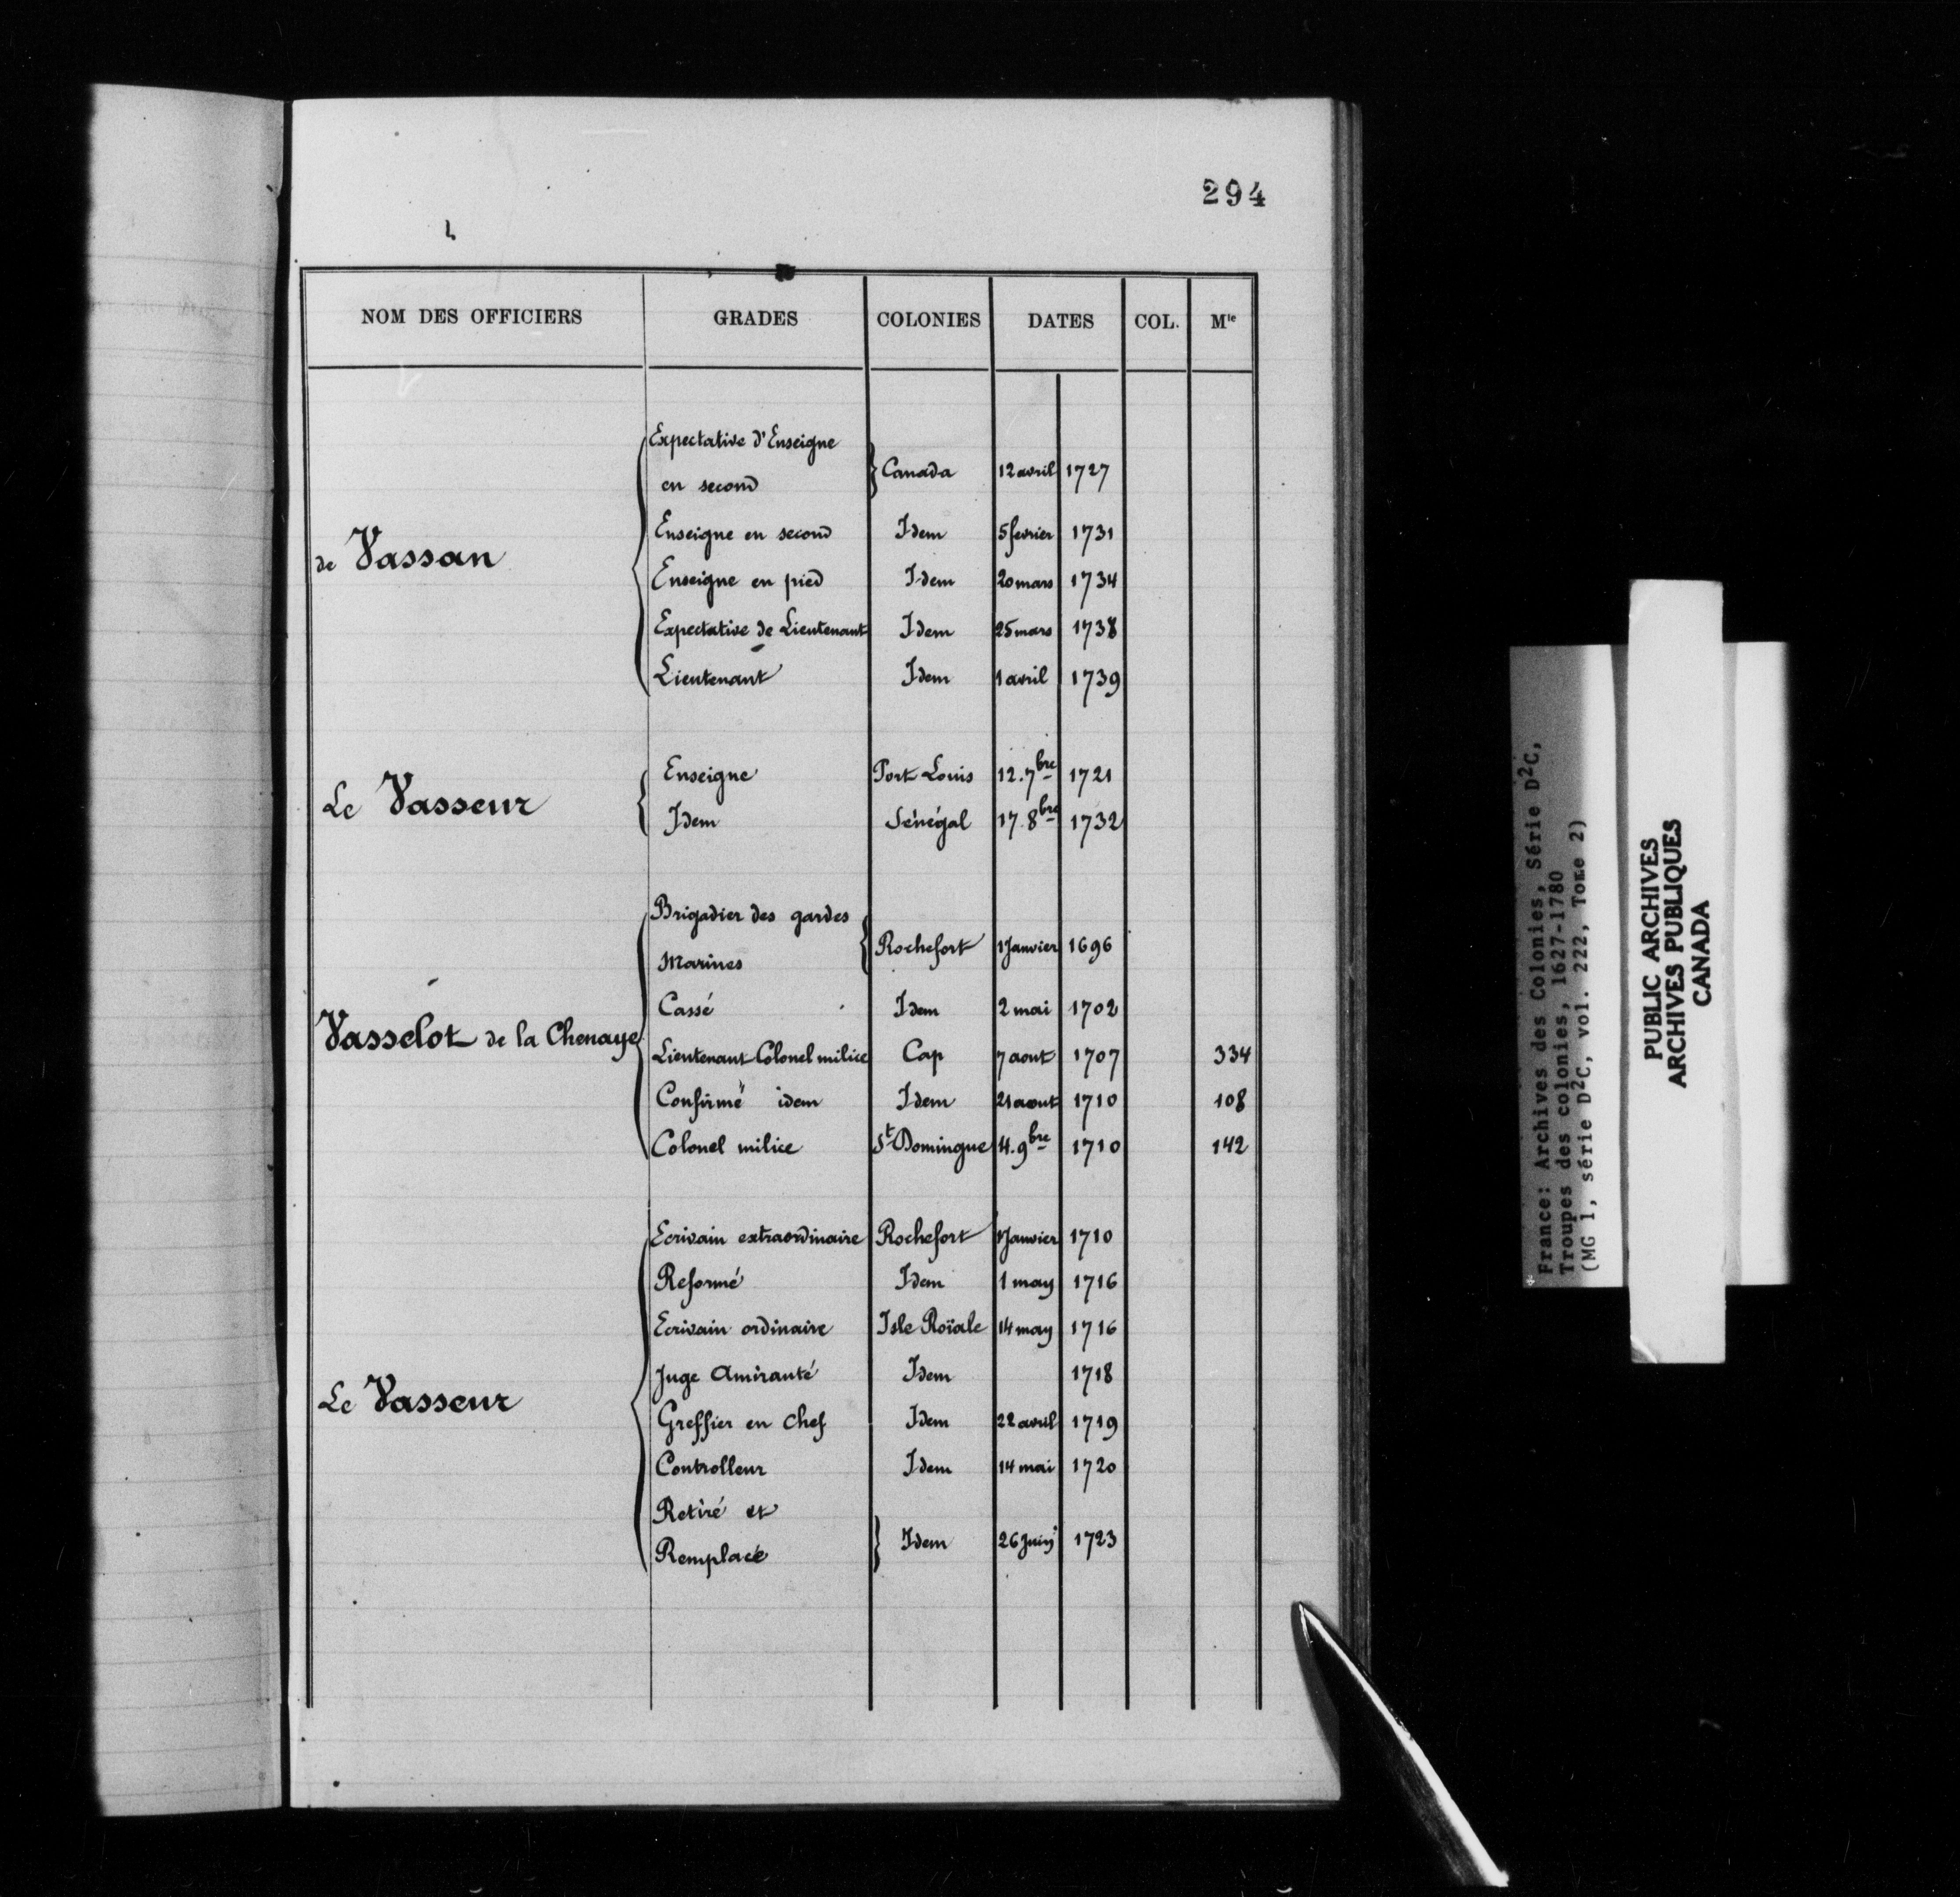 294
NOM DES OFFICIERS GRADES COLONIES DATES COL. Mle
de Vassan
Expectative d'Enseigne
en second Canada 12 avril 1727
Enseigne en second Idem 5 fevrier 1731
Enseigne en pied Idem 20 mars 1734
Expectative de Lieutenant Idem 25 mars 1738
Lieutenant Idem 1 avril 1739
Le Vasseur
Enseigne Port Louis 12. 7bre 1721
Idem Sénégal 17. 8bre 1732
Vasselot de la Chenaye
Brigadier des gardes
Marines Rochefort 1 Janvier 1696
Cassé Idem 2 mai 1702
Lieutenant Colonel milice Cap 7 aout 1707 334
Confirmé idem Idem 21 aout 1710 108
Colonel milice St Domingue 4. 9bre 1710 142
Le Vasseur
Ecrivain extraordinaire Rochefort 1 Janvier 1710
Reformé Idem 1 may 1716
Ecrivain ordinaire Isle Roïale 14 may 1716
Juge Amirauté Idem 1718
Greffier en chef Idem 22 avril 1719
Controlleur Idem 14 mai 1720
Retiré et
Remplacé Idem 26 Juin 1723
France: Archives des Colonies, Série D2C,
Troupes des colonies, 1627-1780
(MG 1, série D2C, vol. 222, Tome 2)
PUBLIC ARCHIVES
ARCHIVES PUBLIQUES
CANADA